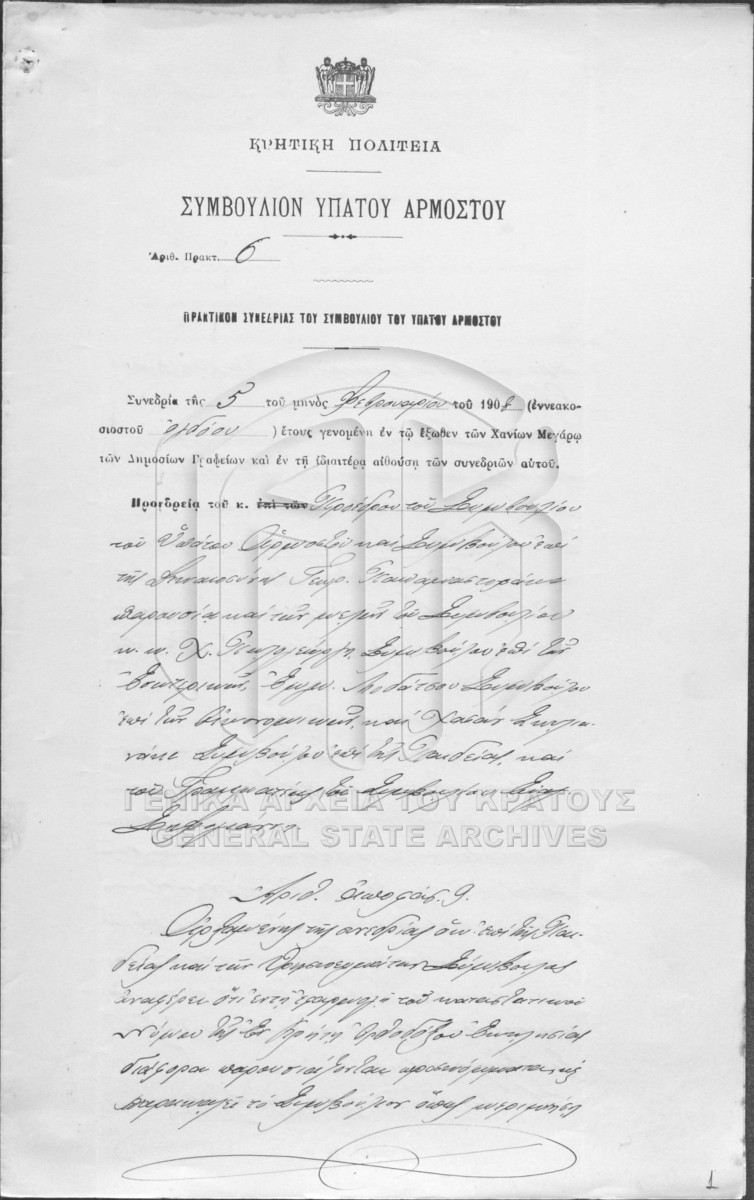 ΚΡΗΤΙΚΗ ΠΟΛΙΤΕΙΑ
ΣΥΜΒΟΥΛΙΟΝ ΥΠΑΤΟΥ ΑΡΜΟΣΤΟΥ
Ἀριθ. Πρακτ. 6
ΠΡΑΚΤΙΚΟΝ ΣΥΝΕΔΡΙΑΣ ΤΟΥ ΣΥΜΒΟΥΛΙΟΥ ΤΟΥ ΥΠΑΤΟΥ ΑΡΜΟΣΤΟΥ
Συνεδρία τῆς 5 τοῦ μηνὸς Φεβρουαρίου τοῦ 1908 (ἐννεακο-
σιοστοῦ ὀγδόου ) ἔτους γενομένη ἐν τῷ ἔξωθεν τῶν Χανίων Μεγάρῳ
τῶν Δημοσίων Γραφείων καὶ ἐν τῇ ἰδιαιτέρᾳ αἰθούσῃ τῶν συνεδριῶν αὐτοῦ.
Προεδρείᾳ τοῦ κ. ἐπὶ τῶν Προέδρου τοῦ Συμβουλίου
τοῦ Ὑπάτου Ἁρμοστοῦ καὶ Συμβούλου ἐπὶ
τῆς Δικαιοσύνης Γεωρ. Παπαμαστοράκη
παρουσίᾳ καὶ τῶν μελῶν τοῦ Συμβουλίου
κ. κ. Χ. Πωλογεώργη Συμβούλου ἐπὶ τῶν
Ἐσωτερικῶν, Ἐμμ. Μοδάτσου Συμβούλου
ἐπὶ τῶν Οἰκονομικῶν, καὶ Χασὰν Σκυλια-
νάκη Συμβούλου ἐπὶ τῆς Παιδείας, καὶ
τοῦ Γραμματέως τοῦ Συμβουλίου
ΓΕΝΙΚΑ ΑΡΧΕΙΑ ΤΟΥ ΚΡΑΤΟΥΣ
GENERAL STATE ARCHIVES
Ἀριθ. ἀποφάσ. 9.
Ἀρξαμένης τῆς συνεδρίας ὁ κ. ἐπὶ τῆς Παι-
δείας καὶ τῶν Θρησκευμάτων Σύμβουλος
ἀναφέρει ὅτι ἐν τῇ ἐφαρμογῇ τοῦ καταστατικοῦ
Νόμου τῆς ἐν Κρήτῃ Ὀρθοδόξου Ἐκκλησίας
διάφορα παρουσιάζονται προσκόμματα καὶ
παρακαλεῖ τὸ Συμβούλιον ὅπως μεριμνήσῃ
1